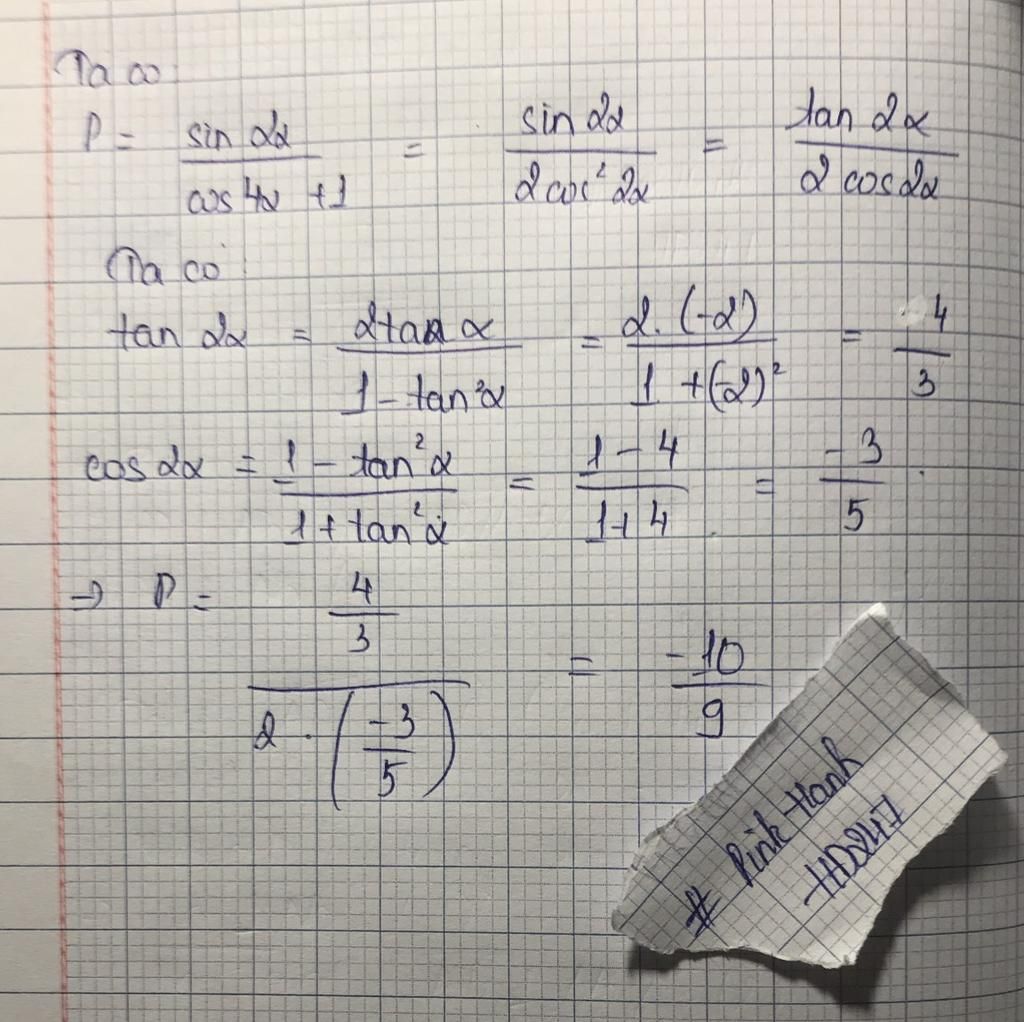 Ta có
P = sin 2α / (cos 4α + 1) = sin 2α / (2 cos² 2α) = tan 2α / (2 cos 2α)
Ta có
tan 2α = 2 tan α / (1 - tan² α) = 2. (-2) / (1 + (-2)²) = 4 / 3
cos 2α = (1 - tan² α) / (1 + tan² α) = (1 - 4) / (1 + 4) = -3 / 5
⇒ P = (4 / 3) / (2 . (-3 / 5)) = -10 / 9
# Pink-Hanh
HD247